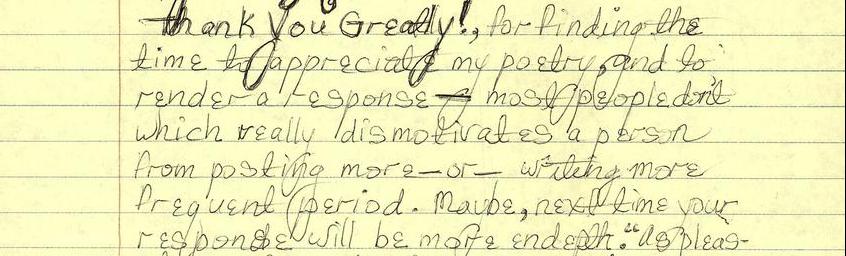 Thank You Greatly!, for finding the
time to appreciate my poetry, and to
render a response – most people don't
which really dismotivates a person
from posting more—or— writing more
frequent period. Maybe, next time your
response will be more endepth. "As pleas-